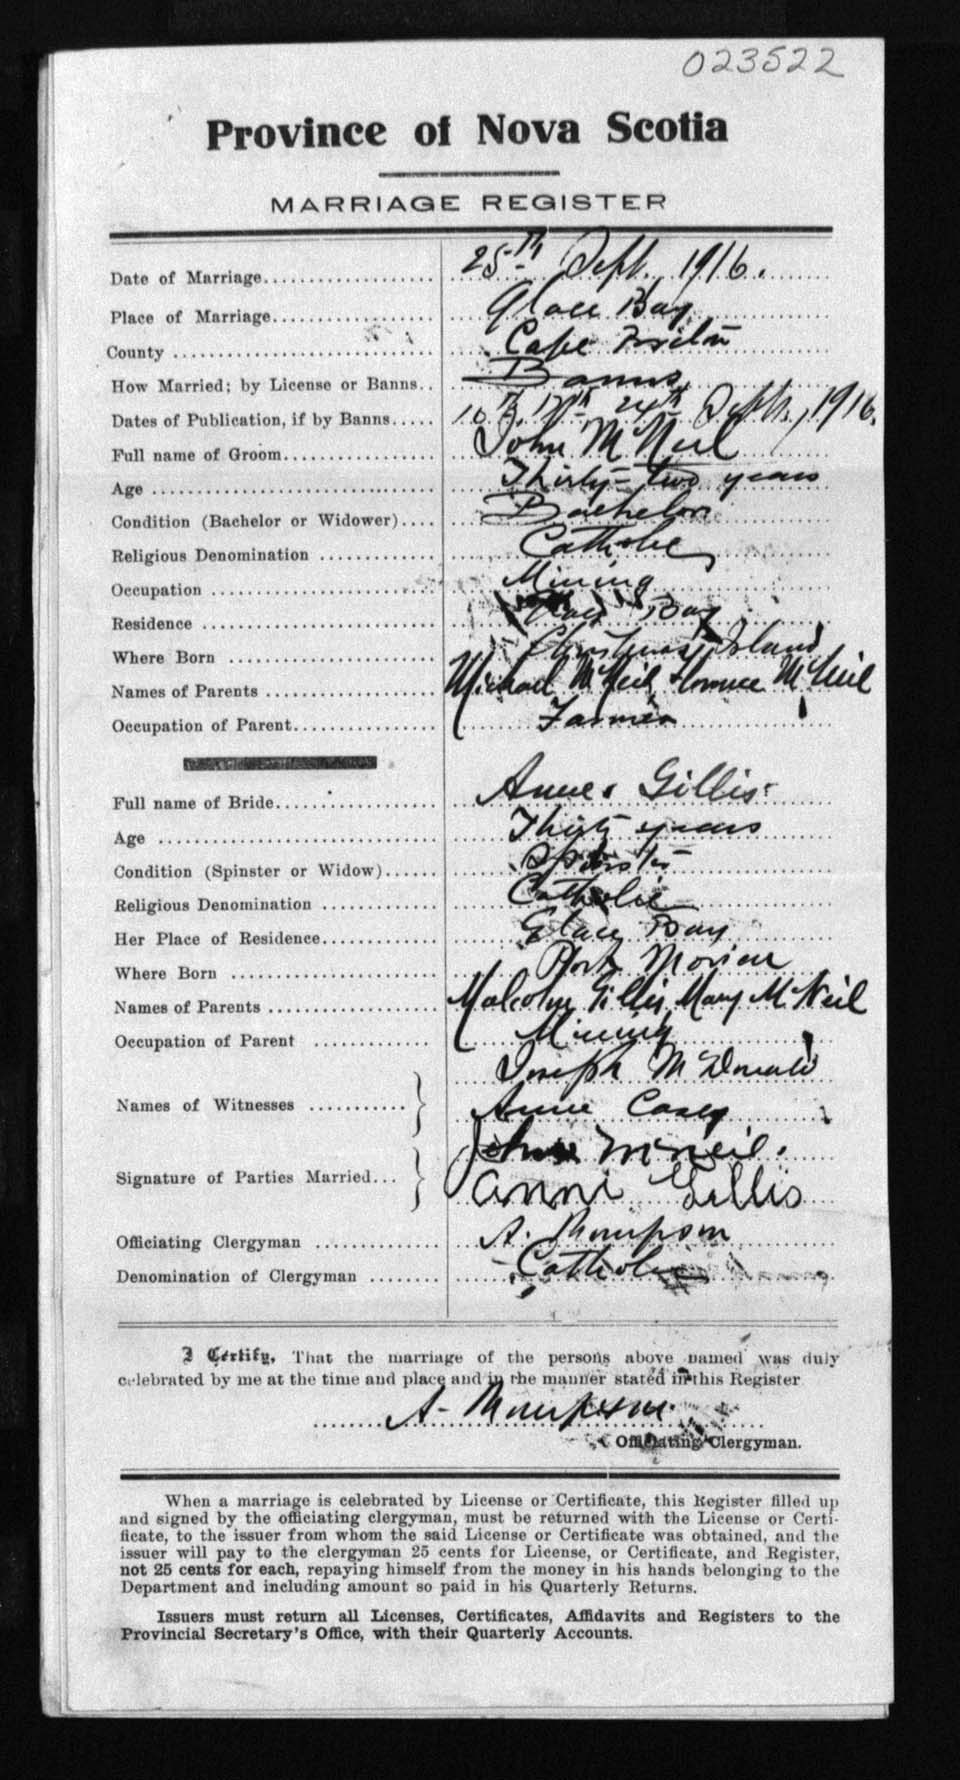 023522
Province of Nova Scotia
MARRIAGE REGISTER
Date of Marriage 25th Sept. 1916.
Place of Marriage Glace Bay
County Cape Breton
How Married; by License or Banns Banns
Dates of Publication, if by Banns 10th, 17th 24th Sept., 1916.
Full name of Groom John McNeil
Age Thirty-two years
Condition (Bachelor or Widower) Bachelor
Religious Denomination Catholic
Occupation Mining
Residence Glace Bay
Where Born Christmas Island
Names of Parents Michael McNeil McNeil
Occupation of Parent Farmer
Full name of Bride Annie Gillis
Age Thirty years
Condition (Spinster or Widow) Spinster
Religious Denomination Catholic
Her Place of Residence Glace Bay
Where Born Port Morien
Names of Parents Malcolm Gillis, Mary McNeil
Occupation of Parent Mining
Joseph McDonald
Names of Witnesses
Annie Casey
John McNeil.
Signature of Parties Married
Anni Gillis
Officiating Clergyman A. Thompson
Denomination of Clergyman Catholic
I Certify, That the marriage of the persons above named was duly
celebrated by me at the time and place and in the manner stated in this Register
A. Thompson
Officiating Clergyman.
When a marriage is celebrated by License or Certificate, this Register filled up
and signed by the officiating clergyman, must be returned with the License or Certi-
ficate, to the issuer from whom the said License or Certificate was obtained, and the
issuer will pay to the clergyman 25 cents for License, or Certificate, and Register,
not 25 cents for each, repaying himself from the money in his hands belonging to the
Department and including amount so paid in his Quarterly Returns.
Issuers must return all Licenses, Certificates, Affidavits and Registers to the
Provincial Secretary's Office, with their Quarterly Accounts.